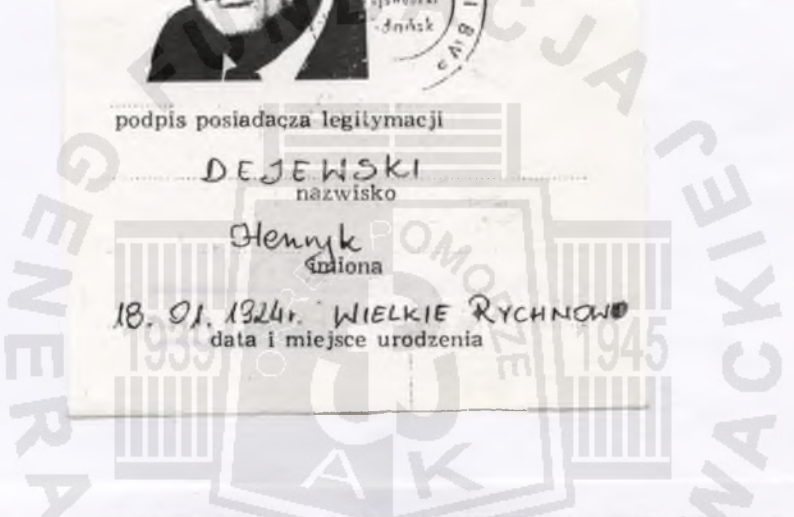 podpis posiadacza legitymacji
DEJEWSKI
nazwisko
Henryk
imiona
18. 01. 1924r. WIELKIE RYCHNOWO
data i miejsce urodzenia
1939 1945
POMORZE
AK